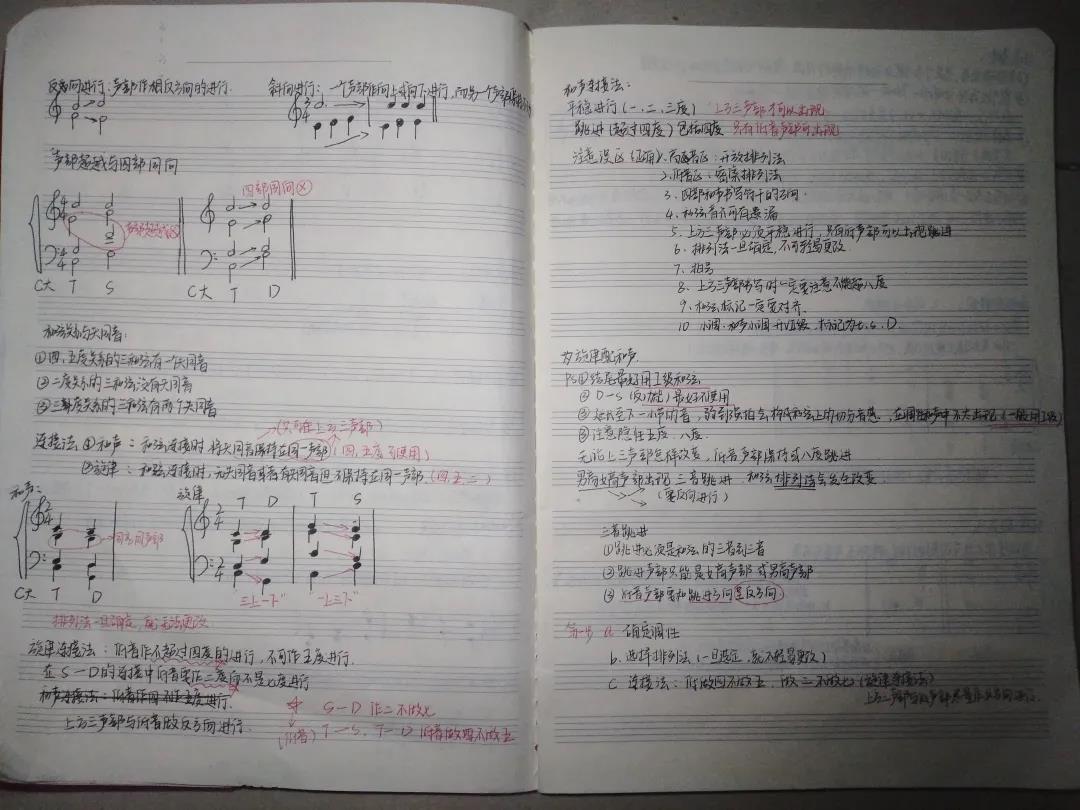 反向进行：声部作相反方向的进行.
斜向进行：一个声部作向上或向下进行，而另一个声部保持
声部超越与四部同向
四部同向⊗
声部超越⊗
C大 T S
C大 T D
和弦关系与共同音：
①四、五度关系的三和弦有一个共同音
②二度关系的三和弦没有共同音
③三度关系的三和弦有两个共同音
(只可在上方三声部)
连接法 ①和声：和弦连接时，将共同音保持在同一声部 (四、五度可使用)
②旋律：和弦连接时，无共同音或者有共同音但不保持在同一声部.(四.五.二)
和声：
旋律
T D T S
2/4
同音同声部
C大 T D
三上一下
一上三下
排列法一旦确定，就无法更改
旋律连接法：低音作不超过四度的进行，不可作五度进行.
在S—D的连接中低音要作二度而不是七度进行
和声连接法：低音作四不作五度进行.
S—D 作二不做七
上方三声部与低音做反方向进行.
(低音) T—S、T—D 低音做四不做五
和声连接法：
平稳进行(一、二、三度) 上方三声部可以出现
跳进(超过四度)包括四度 只有低音声部可出现
注意误区(正确)1.高音区：开放排列法
2.低音区：密集排列法
3、四部和声书写符干的方向.
4、和弦音不可有遗漏
5、上方三声部必须平稳进行，只有低声部可以出现跳进
6、排列法一旦确定，不可轻易更改
7、拍号
8、上方三声部书写时一定要注意不能超八度
9、和弦标记一定要对齐.
10 小调.和声小调升Ⅶ级，标记为t、s、D.
为旋律配和声
PS ①结尾最好用Ⅰ级和弦
②D—S(反功能)最好不使用
③注意隐伏五度、八度.
无论上三声部怎样改变，低音声部保持或八度跳进
男高女高声部出现三音跳进 和弦排列法会发生改变
(要反向进行)
三音跳进
①跳进必须是和弦的三音到三音
②跳进声部只能是女高声部或男高声部
③低音声部要和跳进方向是反方向
第一步 a. 确定调性
b.选择排列法(一旦选定，就不轻易更改)
C 连接法：低做四不做五，做二不做七(旋律连接法)